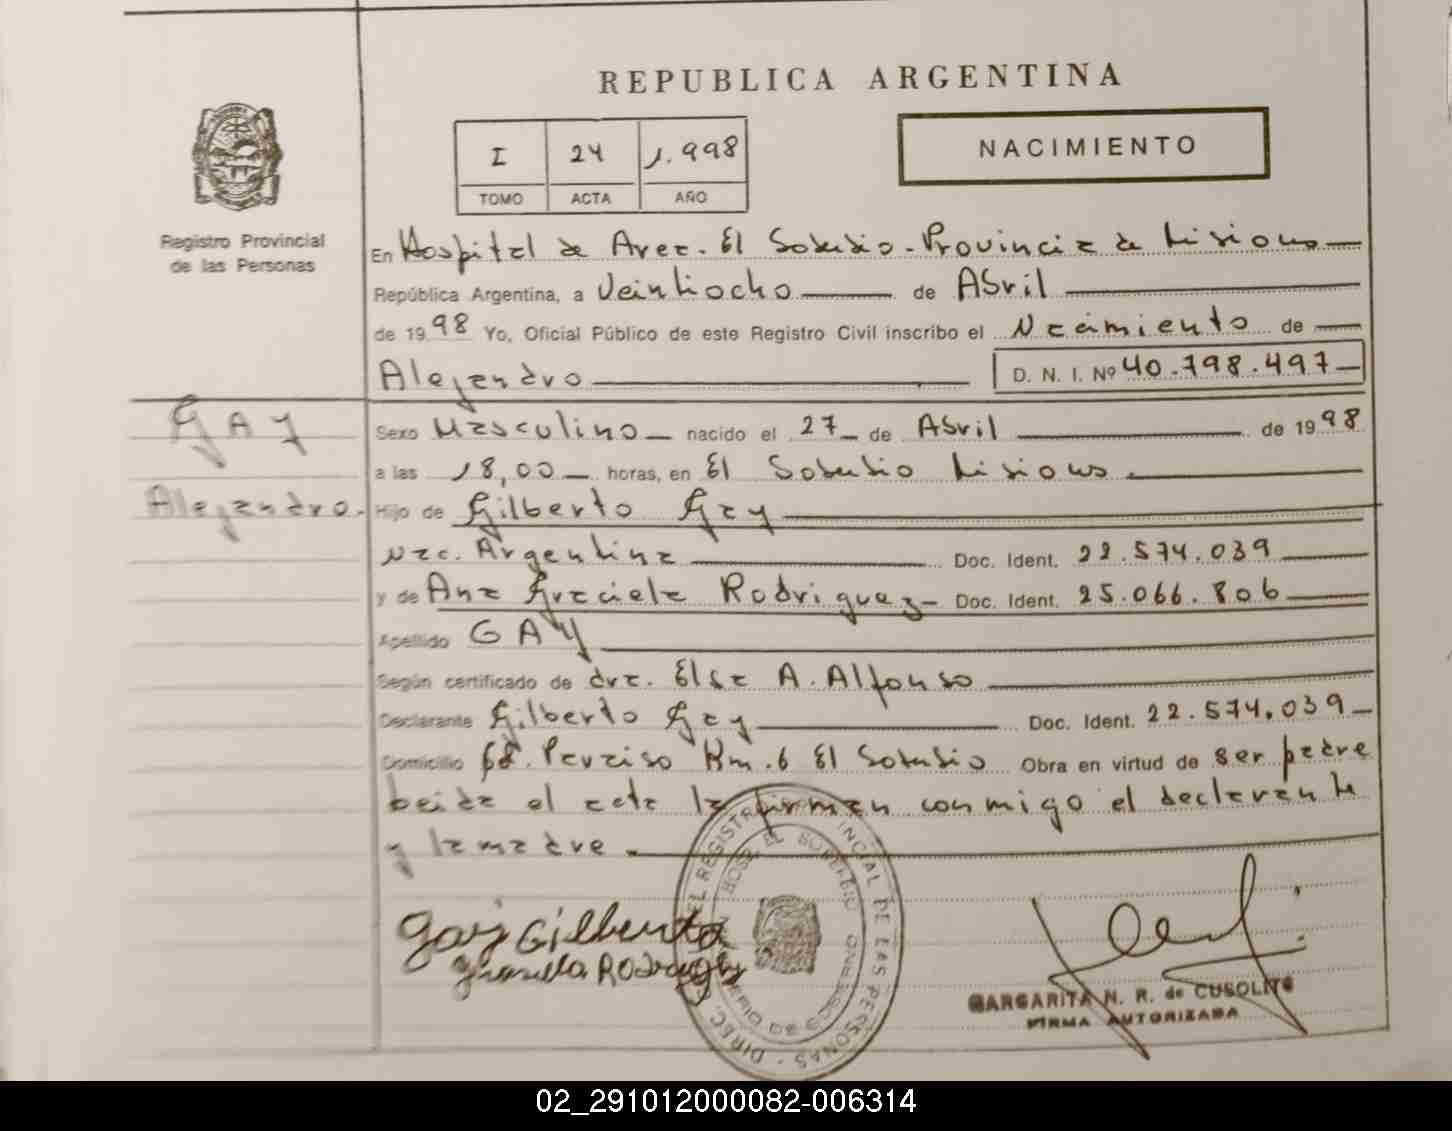 REPUBLICA ARGENTINA
I 24 1.998
TOMO ACTA AÑO
NACIMIENTO
Registro Provincial
de las Personas
En Hospital de Area. El Soberbio - Provincia de Misiones
República Argentina, a Veintiocho de Abril
de 1998 Yo, Oficial Público de este Registro Civil inscribo el Nacimiento de
Alejandro D. N. I. Nº 40.798.497
GAY
Alejandro.
Sexo Masculino nacido el 27 de Abril de 1998
a las 18,00 horas, en El Soberbio Misiones.
Hijo de Gilberto Gay
Nac. Argentina Doc. Ident. 22.574.039
y de Ana Graciela Rodriguez Doc. Ident. 25.066.806
Apellido GAY
Según certificado de dra. Elsa A. Alfonso
Declarante Gilberto Gay Doc. Ident. 22.574.039
Domicilio Paraiso Km. 6 El Soberbio Obra en virtud de ser padre
leida el acta la firman conmigo el declarante
y la madre.
Gay Gilberto
DEL REGISTRO PROVINCIAL DE LAS PERSONAS - DIREC.
HOSP. EL SOBERBIO
MINISTERIO DE GOBIERNO
MARGARITA N. R. de CUSOLITO
FIRMA AUTORIZADA
02_291012000082-006314